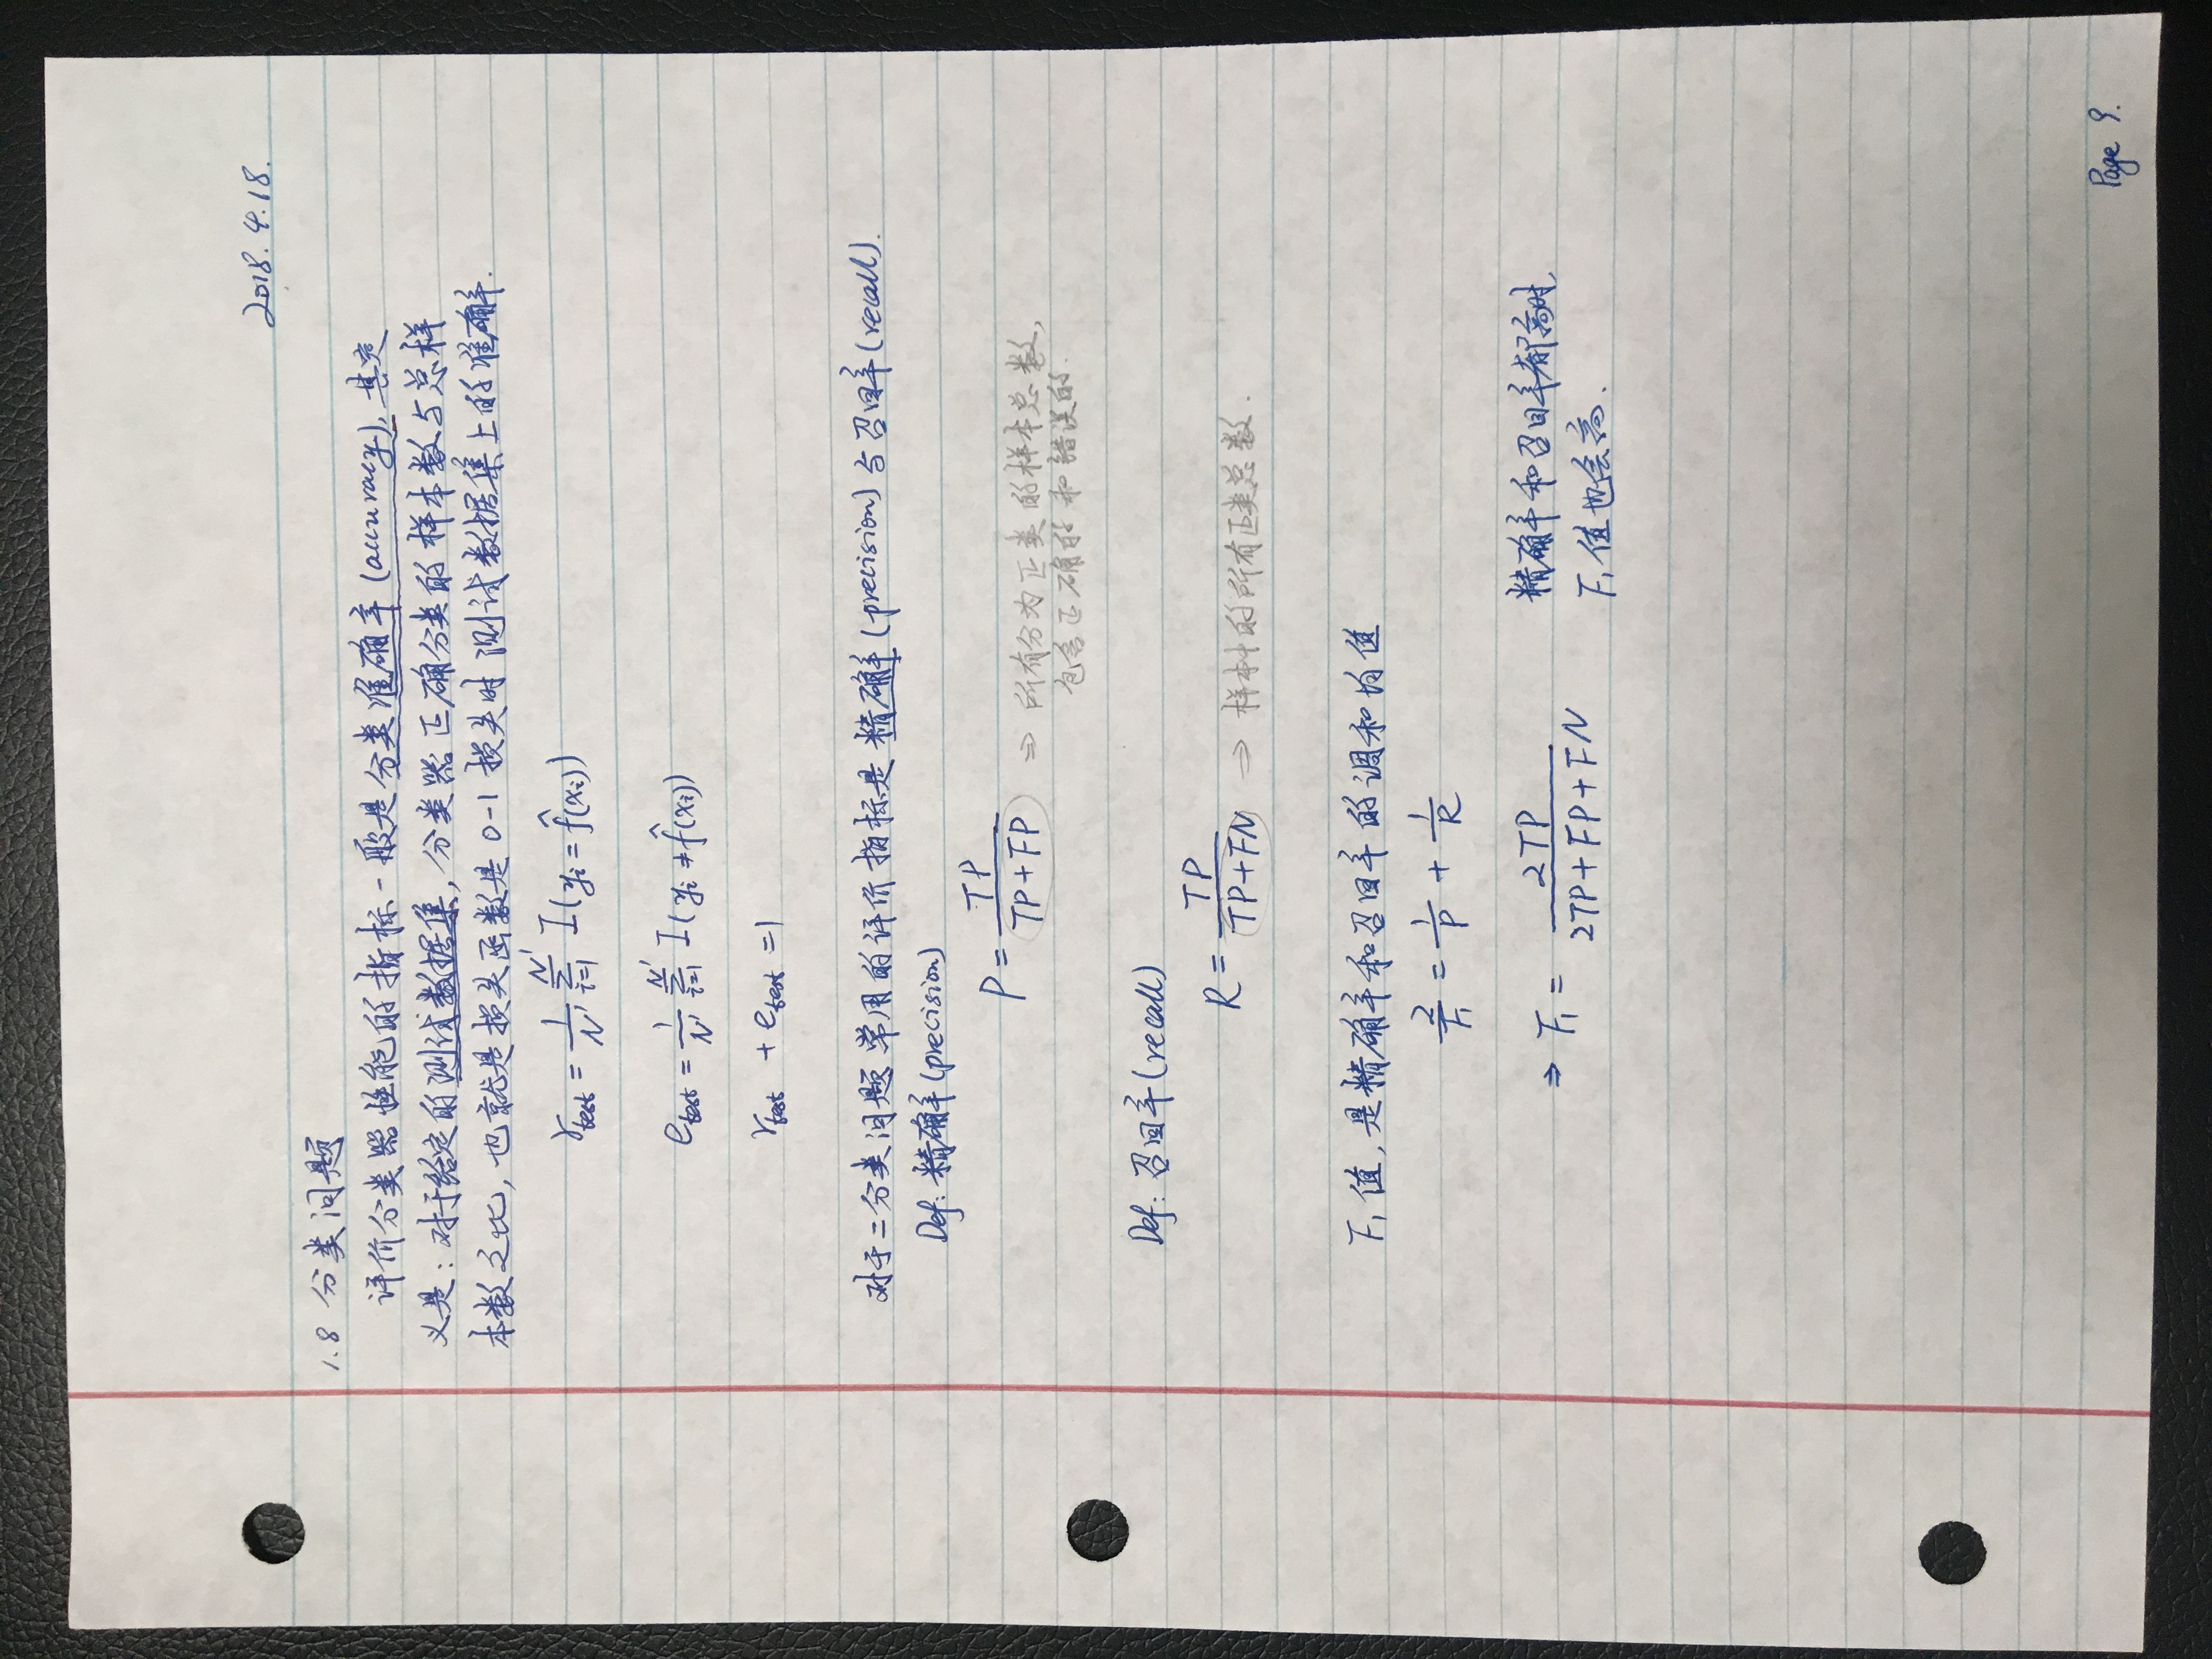 2018.4.18.
1.8 分类问题
评价分类器性能的指标一般是分类准确率(accuracy), 其定
义是: 对于给定的测试数据集, 分类器正确分类的样本数与总样
本数之比, 也就是损失函数是0-1损失时测试数据集上的准确率.
r_test = 1/N' Σ_{i=1}^{N'} I(y_i = f̂(x_i))
e_test = 1/N' Σ_{i=1}^{N'} I(y_i ≠ f̂(x_i))
r_test + e_test = 1
对于二分类问题常用的评价指标是精确率(precision)与召回率(recall).
Def: 精确率(precision)
P = TP/(TP+FP) ⇒ 所有分为正类的样本总数,
包含正确的和错误的.
Def: 召回率(recall)
R = TP/(TP+FN) ⇒ 样本中的所有正类总数.
F₁值, 是精确率和召回率的调和均值
2/F₁ = 1/P + 1/R
⇒ F₁ = 2TP/(2TP+FP+FN) 精确率和召回率都高时,
F₁值也会高.
Page 9.